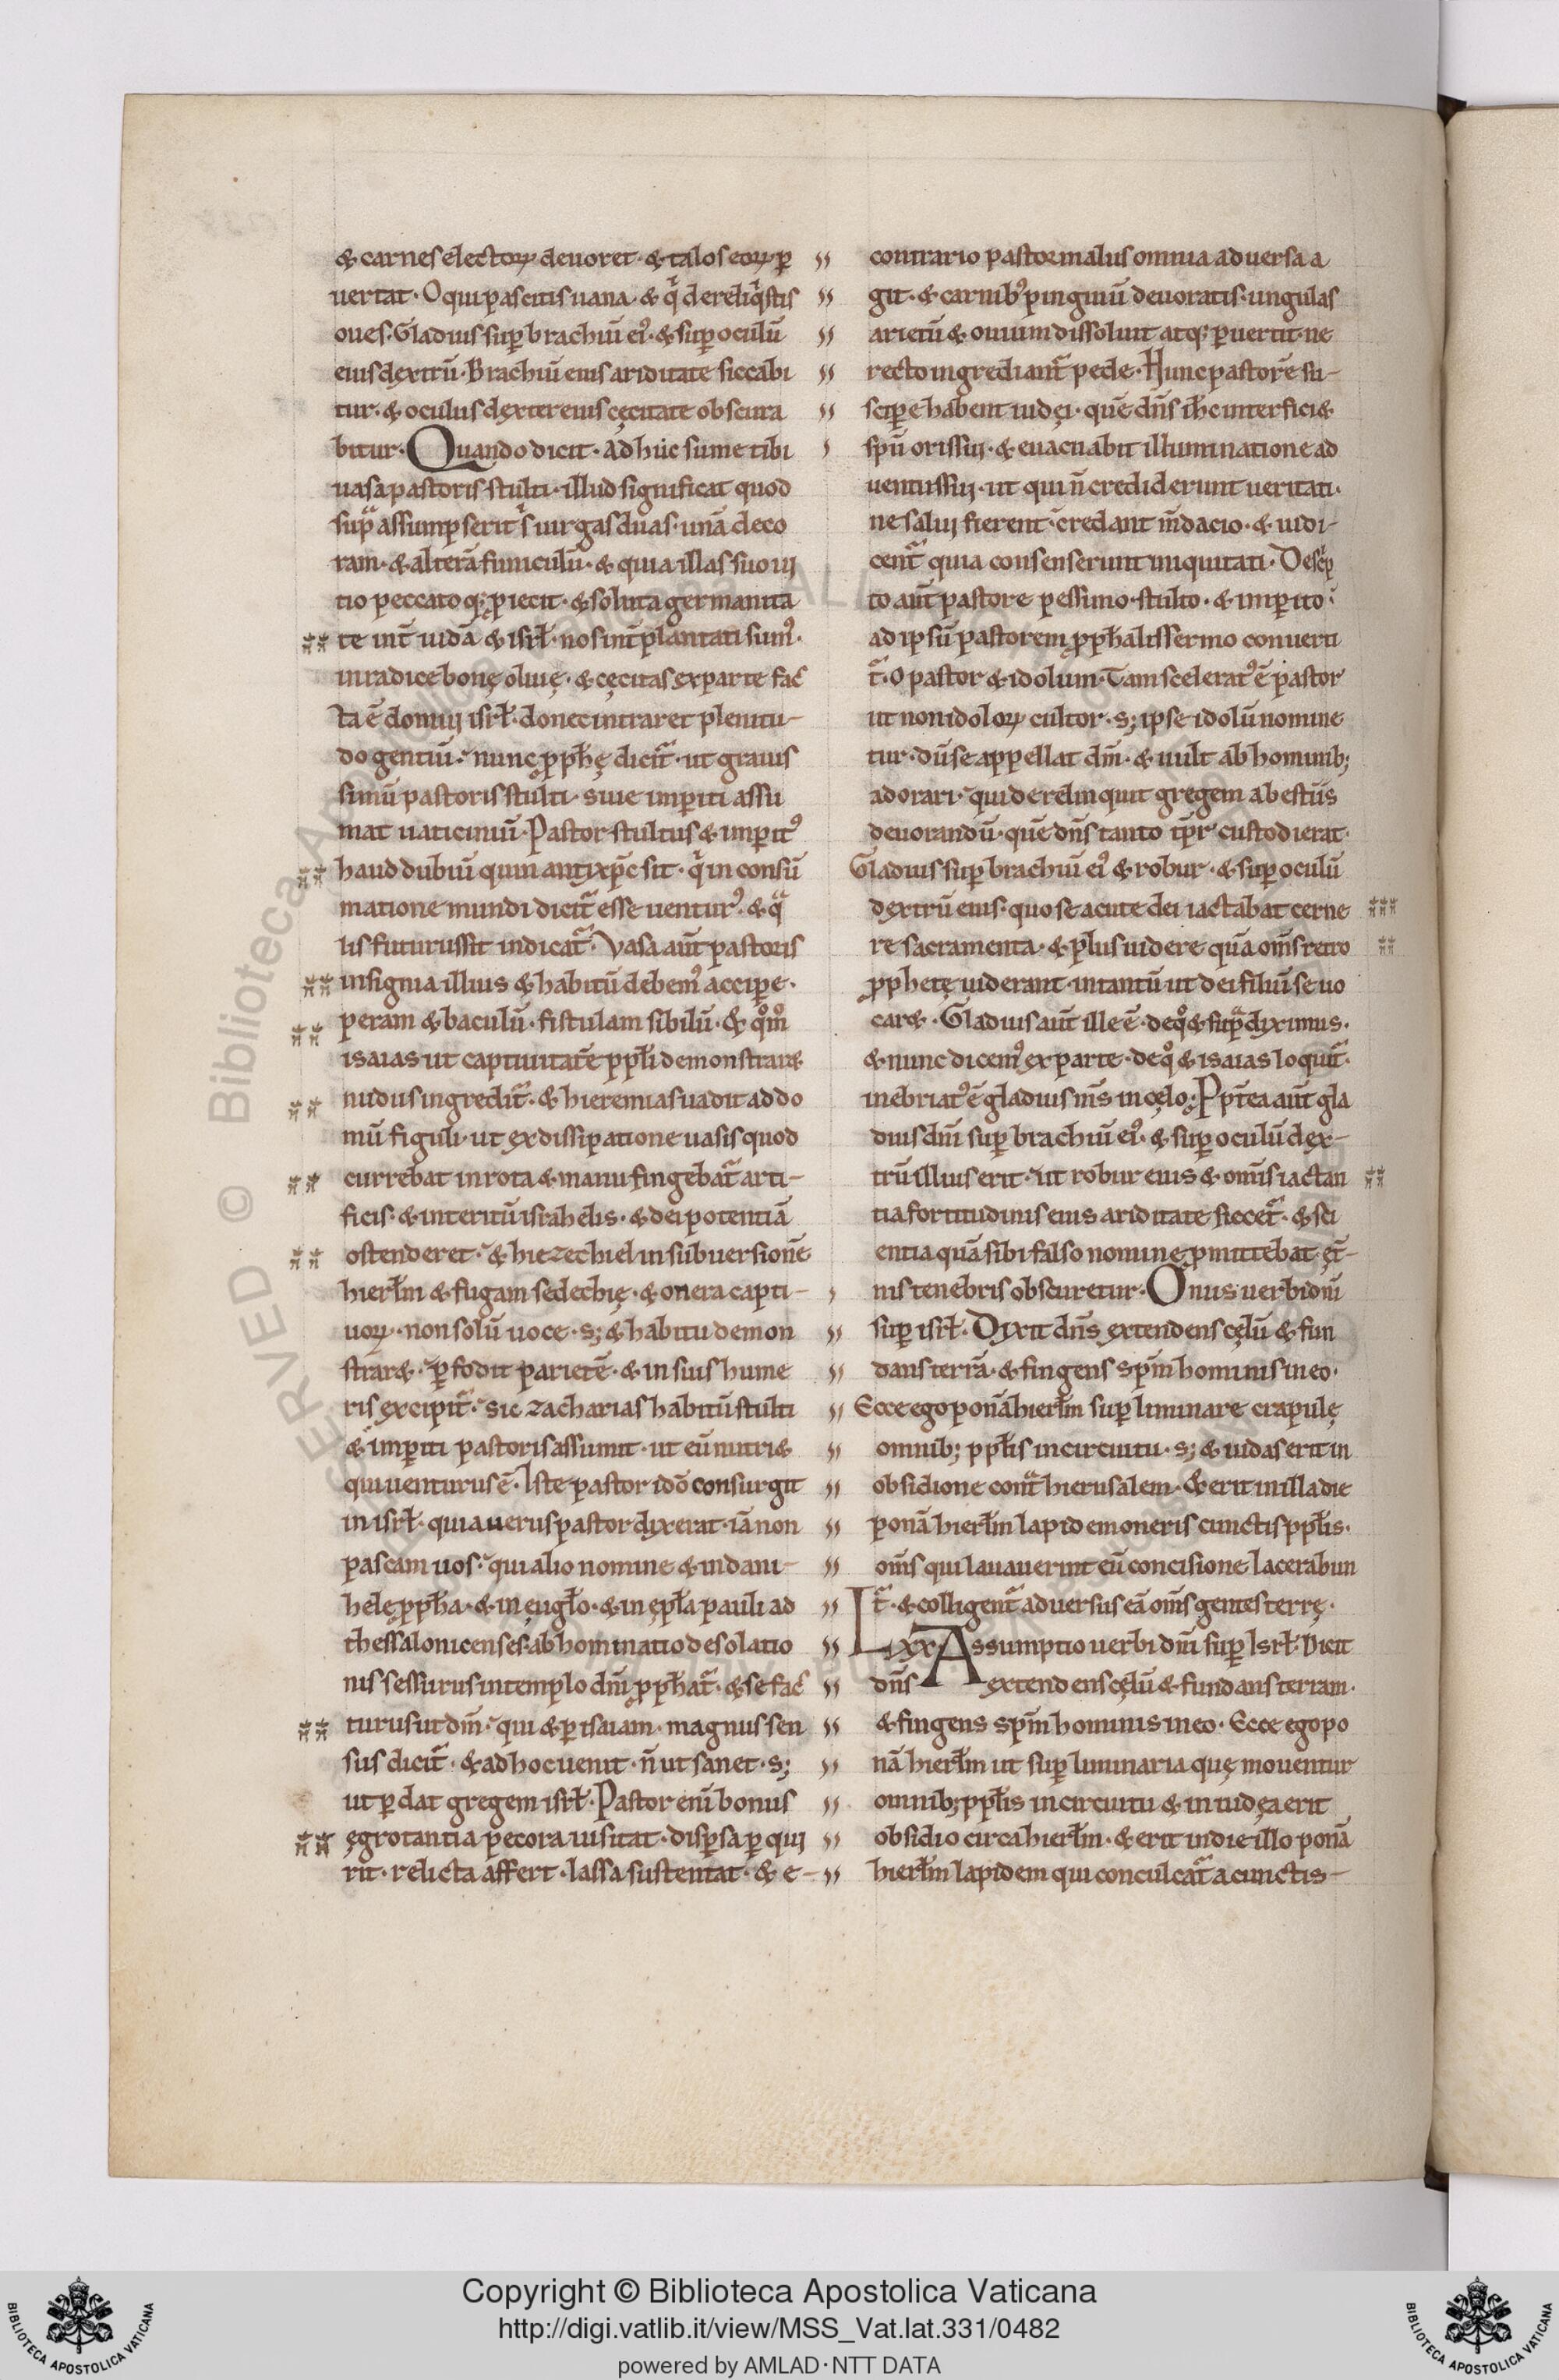 & carnes electoꝝ deuoret · & talos eoꝝ ꝑ
uertat · O qui pascitis uana & q̇ dereliq̇stis
oues · Gladius suꝑ brachiū ei᾽ · & suꝑ oculū
eius dextrū · Brachiū eius ariditate siccabi
tur · & oculus dexter eius cęcitate obscura
bitur · Quando dicit · Adhuc sume tibi
uasa pastoris stulti · illud significat quod
supᷓ assumpserit s̉ uirgas duas · unā deco
ram · & alterā funiculū · & quia illas suo ui
tio peccatoq; ꝓiecit · & soluta germanita
te int̄ iudā & isrł · nos int̄plantati sum᾽ ·
in radice bonę oliuę · & cęcitas ex parte fac
ta ē domui isrł · donec intraret plenitu-
do gentiū · nunc ꝓph̄ę dicit᷑ · ut grauis
simū pastoris stulti siue imꝑiti assu
mat uaticiniū · Pastor stultus & imꝑit᾽
haud dubiū quin antixp̄c sit · q̇ in consū
matione mundi dicit᷑ esse uentur᾽ · & qᷓ
lis futurus sit indicat᷑ · Vasa aūt pastoris
insignia illius & habitū debem᾽ acciꝑe ·
peram & baculū · fistulam sibilū · & qͦmͦ
isaias ut captiuitatē ppłi demonstraret
nudus ingredit᷑ · & hieremias uadit ad do
mū figuli · ut ex dissipatione uasis quod
currebat in rota & manu fingebat᷑ arti-
ficis · & interitū israhelis · & dei potentiā
ostenderet · & hiezechiel in subuersionē
hierłm & fugam sedechię · & onera capti-
uoꝝ · non solū uoce · s; & habitu demon
straret · ꝑfodit parietē · & in suis hume
ris excipit᷑ · sic zacharias habitū stulti
& imꝑiti pastoris assumit · ut eū nutriet
qui uenturus ē · Iste pastor idō consurgit
in isrł · quia uerus pastor dixerat · iā non
pascam uos · qui alio nomine & in dani-
hele ꝓph̄a · & in eugło · & in epła pauli ad
thessalonicenses abhominatio desolatio
nis sessurus in templo dn̄i ꝓph̄at᷑ · & se fac
turus ut dm̄ · qui & ꝑ isaiam · magnus sen
sus dicit᷑ · & ad hoc uenit · n̄ ut sanet · s;
ut ꝑdat gregem isrł · Pastor eni bonus
ęgrotantia pecora uisitat · disꝑsa ꝑqui
rit · relicta affert · lassa sustentat · & e-
contrario pastor malus omnia aduersa a
git · & carnib᾽ pinguiū deuoratis · ungulas
arietū & ouium dissoluit atq; ꝑuertit · ne
recto ingrediant᷑ pede · Hunc pastorē su-
sciꝑe habent iudęi · quē dn̄s ih̄c interficiet
spū oris sui · & euacuabit illuminatione ad
uentus sui · ut qui n̄ crediderunt ueritati ·
ne salui fierent · credant m̄dacio · & iudi-
cent᷑ quia consenserunt iniquitati · Descͥp
to aūt pastore pessimo · stulto · & imꝑito ·
ad ipsū pastorem ꝓph̄alis sermo conuerti
t᷑ · O pastor & idolum · Tam scelerat᾽ ē pastor
ut non idoloꝝ cultor · s; ipse idolū nomine
tur · dū se appellat dm̄ · & uult ab hominib;
adorari · qui derelinquit gregem a bestiis
deuorandū · quē dn̄s tanto tp̄r custodierat ·
Gladius suꝑ brachiū ei᾽ & robur · & suꝑ oculū
dextrū eius · quo se acute dei iactabat cerne
re sacramenta · & plus uidere quā om̄s retro
ꝓphetę uiderant · in tantū ut dei filiū se uo
caret · Gladius aūt ille ē · de qͦ & supᷓ diximus ·
& nunc dicem᾽ ex parte · de qͦ & isaias loquit᷑ ·
inebriat᾽ ē gladius m̄s in cęlo · Ppt̄ea aūt gla
dius dn̄i suꝑ brachiū ei᾽ · & suꝑ oculū dex-
trū illius erit · ut robur eius & om̄s iactan
tia fortitudinis eius ariditate siccet᷑ · & sci
entia quā sibi falso nomine ꝓmittebat ęt̄-
nis tenebris obscuretur · Onus uerbi dn̄i
suꝑ isrł · Dixit dn̄s extendens cęlū & fun
dans terrā · & fingens spm̄ hominis in eo ·
Ecce ego ponā hierłm suꝑliminare crapulę
omnib; ppłis in circuitu · s; & iudas erit in
obsidione contᷓ hierusalem · & erit in illa die
ponā hierłm lapidem oneris cunctis ppłis ·
om̄s qui lauauerint eū concisione lacerabun
t᷑ · & colligent᷑ aduersus eā om̄s gentes terrę ·
Lxx · Assumptio uerbi dn̄i suꝑ Isrł · Dicit
dn̄s extendens cęlū & fundans terram ·
& fingens spm̄ hominis in eo · Ecce ego po
nā hierłm ut suꝑliminaria quę mouentur
omnib; ppłis in circuitu & in iudęa erit
obsidio circa hierłm · & erit in die illo ponā
hierłm lapidem qui conculcat᷑ a cunctis-
Copyright © Biblioteca Apostolica Vaticana
http://digi.vatlib.it/view/MSS_Vat.lat.331/0482
powered by AMLAD·NTT DATA
BIBLIOTECA APOSTOLICA VATICANA
BIBLIOTECA APOSTOLICA VATICANA